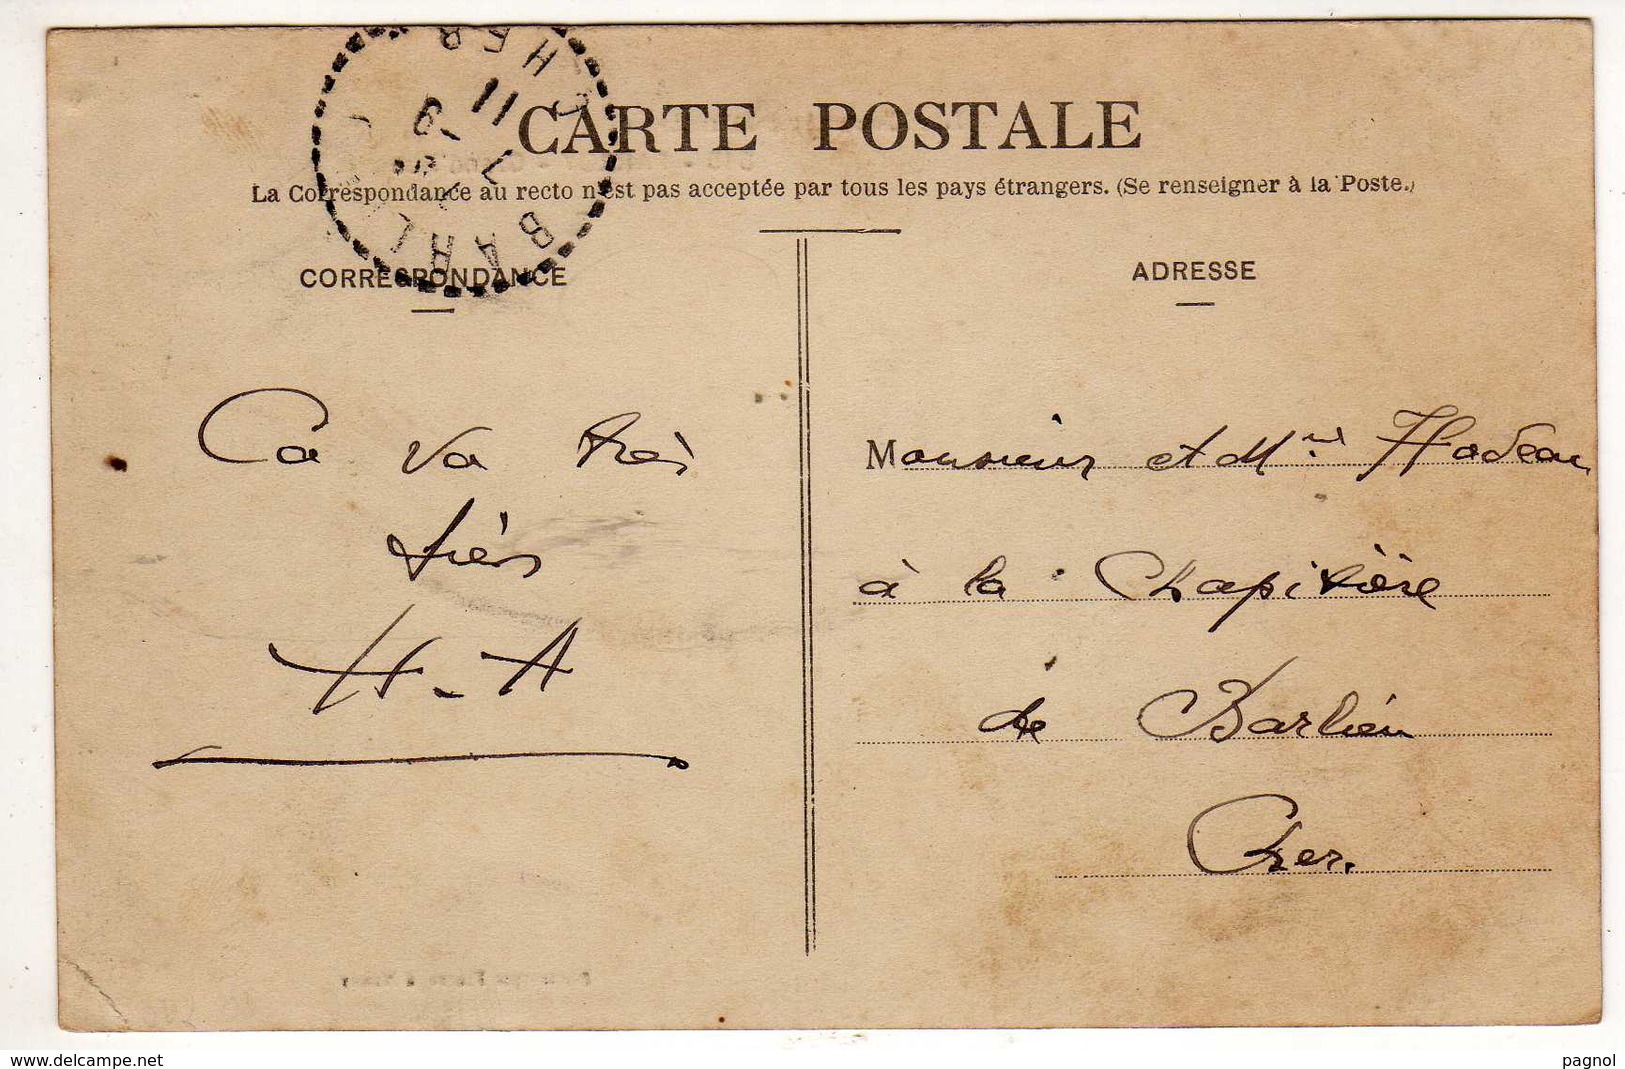 CARTE POSTALE
La Correspondance au recto n'est pas acceptée par tous les pays étrangers. (Se renseigner à la Poste.)
CORRESPONDANCE
Ca va très
très
H-A
ADRESSE
Monsieur et Mme Hodeau
à la Chapitière
de Barlieu
Cher.
BARLIEU
CHER
11
www.delcampe.net
pagnol